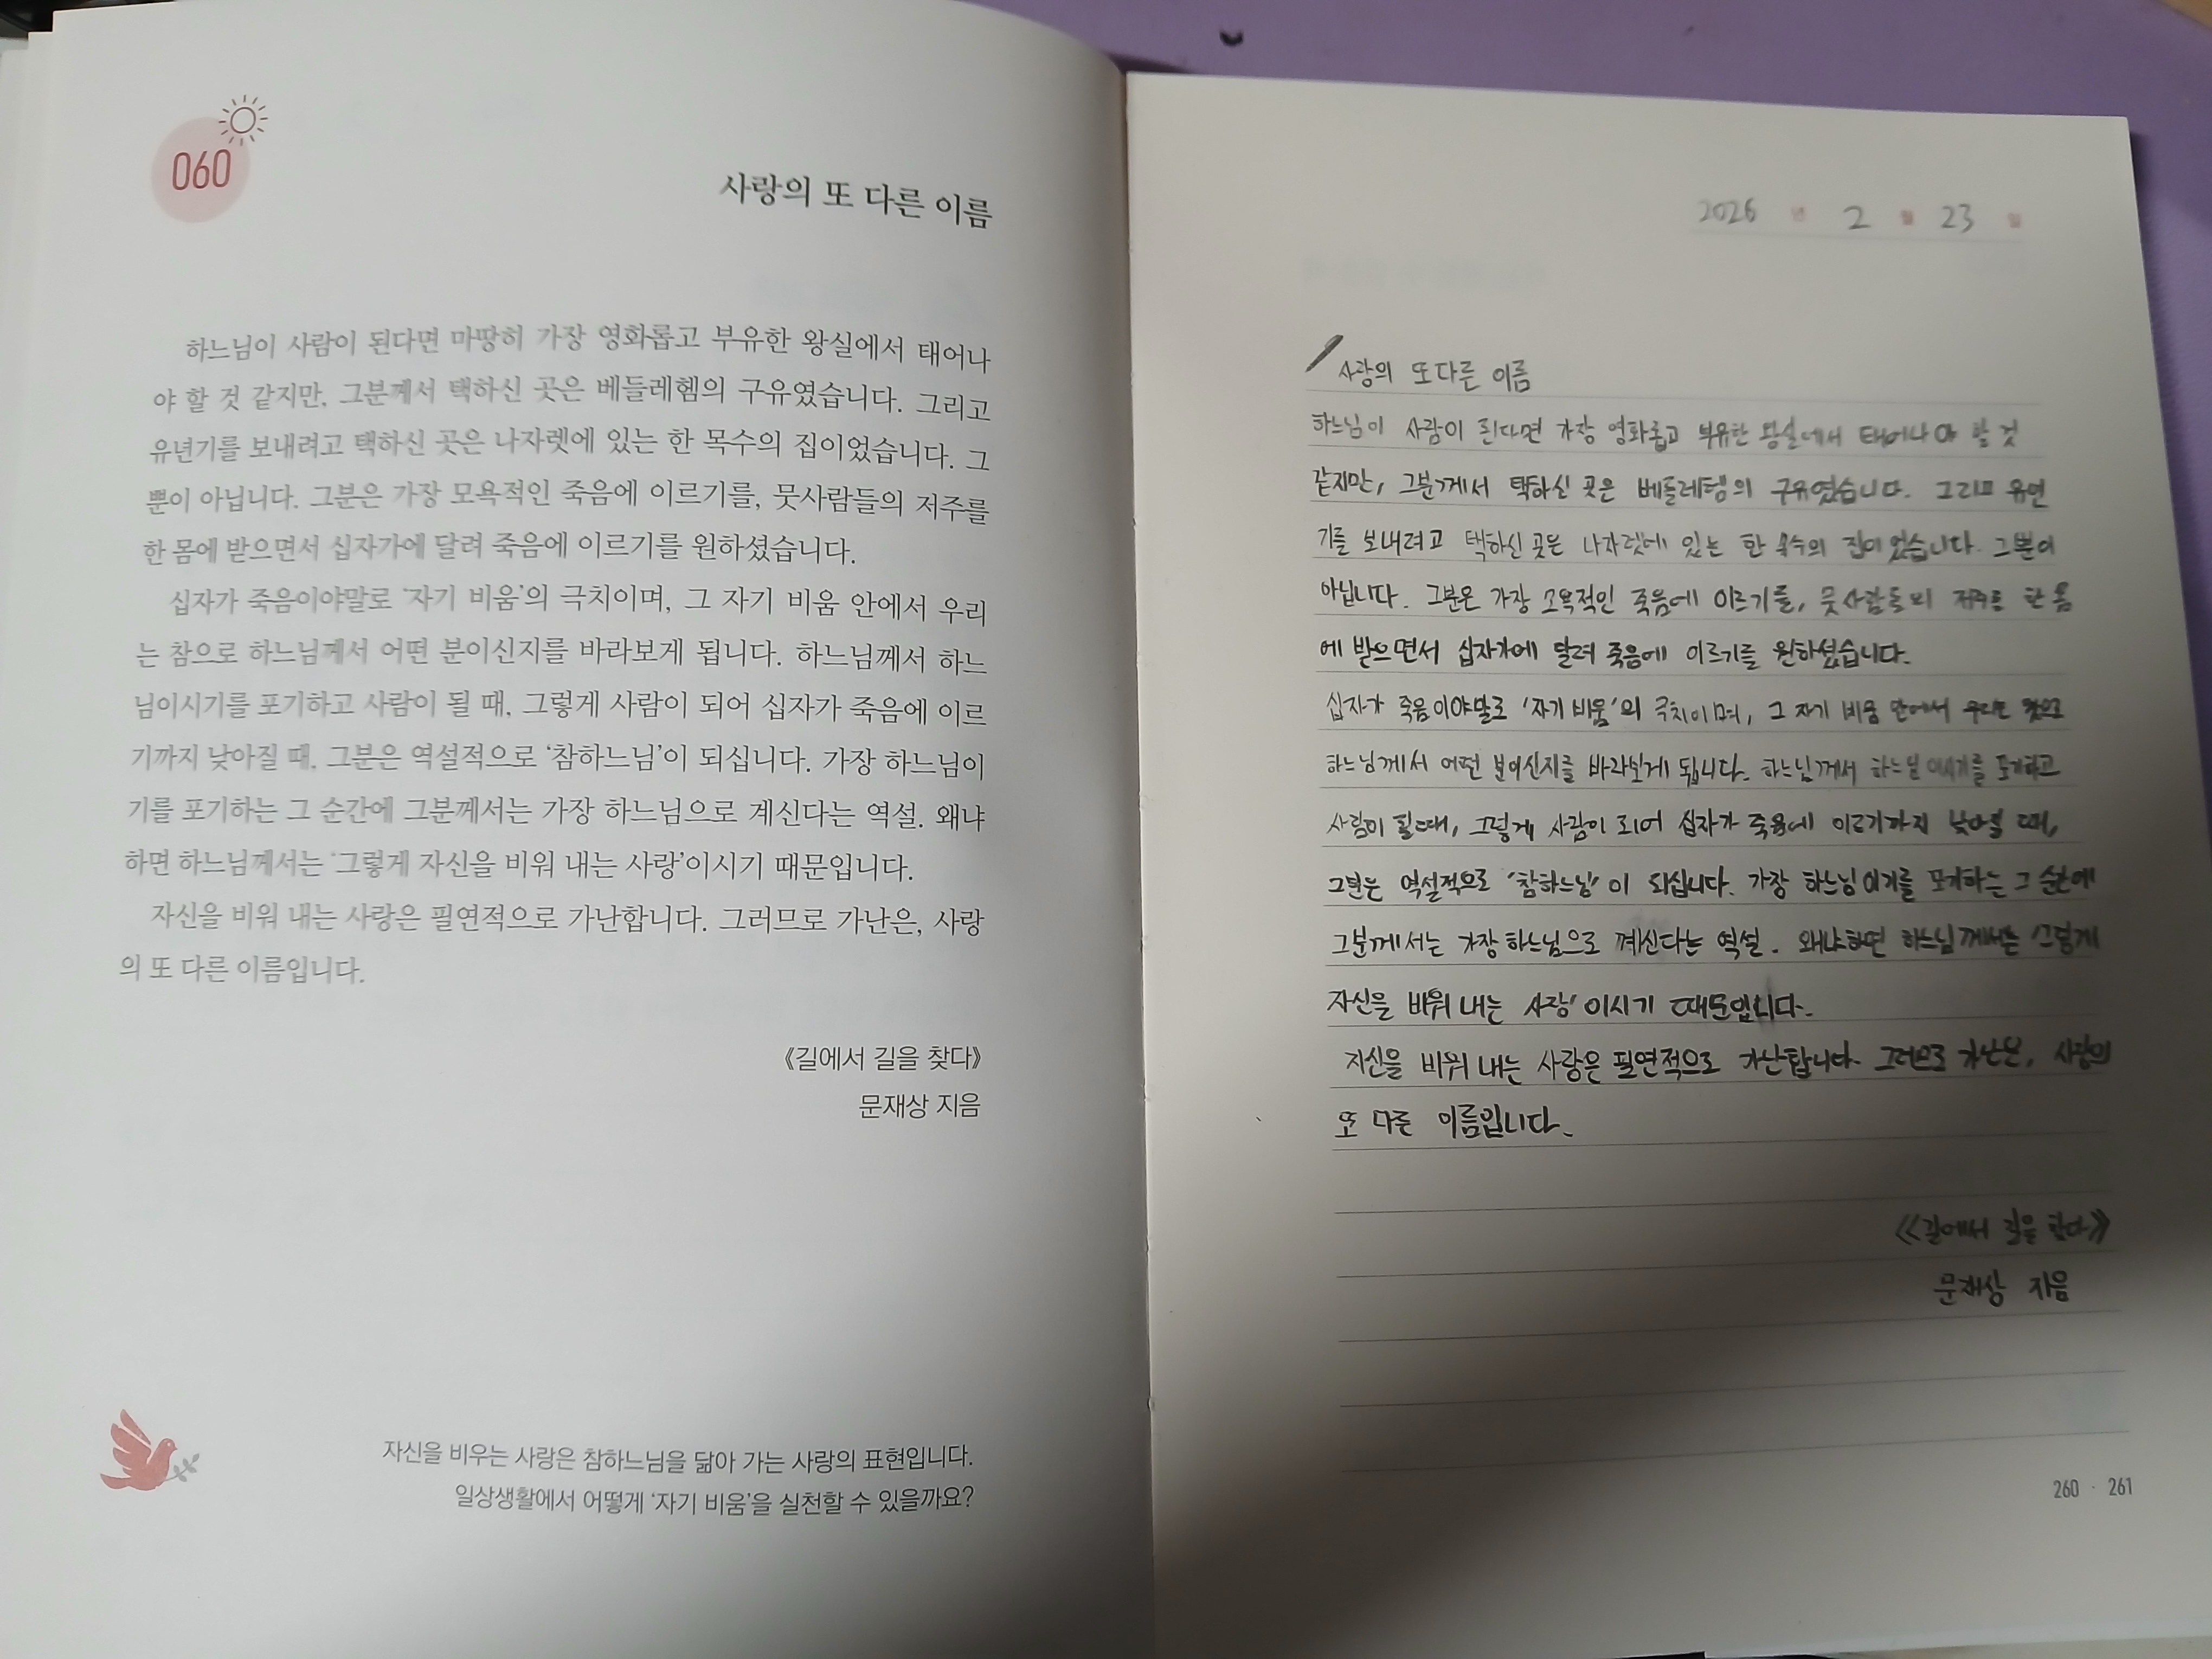 060
사랑의 또 다른 이름
하느님이 사람이 된다면 마땅히 가장 영화롭고 부유한 왕실에서 태어나
야 할 것 같지만, 그분께서 택하신 곳은 베들레헴의 구유였습니다. 그리고
유년기를 보내려고 택하신 곳은 나자렛에 있는 한 목수의 집이었습니다. 그
뿐이 아닙니다. 그분은 가장 모욕적인 죽음에 이르기를, 뭇사람들의 저주를
한 몸에 받으면서 십자가에 달려 죽음에 이르기를 원하셨습니다.
십자가 죽음이야말로 ‘자기 비움’의 극치이며, 그 자기 비움 안에서 우리
는 참으로 하느님께서 어떤 분이신지를 바라보게 됩니다. 하느님께서 하느
님이시기를 포기하고 사람이 될 때, 그렇게 사람이 되어 십자가 죽음에 이르
기까지 낮아질 때, 그분은 역설적으로 ‘참하느님’이 되십니다. 가장 하느님이
기를 포기하는 그 순간에 그분께서는 가장 하느님으로 계신다는 역설. 왜냐
하면 하느님께서는 ‘그렇게 자신을 비워 내는 사랑’이시기 때문입니다.
자신을 비워 내는 사랑은 필연적으로 가난합니다. 그러므로 가난은, 사랑
의 또 다른 이름입니다.
《길에서 길을 찾다》
문재상 지음
자신을 비우는 사랑은 참하느님을 닮아 가는 사랑의 표현입니다.
일상생활에서 어떻게 ‘자기 비움’을 실천할 수 있을까요?
2026 년 2 월 23 일
사랑의 또 다른 이름
하느님이 사람이 된다면 가장 영화롭고 부유한 왕실에서 태어나야 할 것
같지만, 그분께서 택하신 곳은 베들레헴의 구유였습니다. 그리고 유년
기를 보내려고 택하신 곳은 나자렛에 있는 한 목수의 집이었습니다. 그뿐이
아닙니다. 그분은 가장 모욕적인 죽음에 이르기를, 뭇사람들의 저주를 한 몸
에 받으면서 십자가에 달려 죽음에 이르기를 원하셨습니다.
십자가 죽음이야말로 '자기 비움'의 극치이며, 그 자기 비움 안에서 우리는 참으로
하느님께서 어떤 분이신지를 바라보게 됩니다. 하느님께서 하느님이시기를 포기하고
사람이 될 때, 그렇게 사람이 되어 십자가 죽음에 이르기까지 낮아질 때,
그분은 역설적으로 '참하느님'이 되십니다. 가장 하느님이기를 포기하는 그 순간에
그분께서는 가장 하느님으로 계신다는 역설. 왜냐하면 하느님께서는 '그렇게
자신을 비워 내는 사랑'이시기 때문입니다.
자신을 비워 내는 사랑은 필연적으로 가난합니다. 그러므로 가난은, 사랑의
또 다른 이름입니다.
《길에서 길을 찾다》
문재상 지음
260 · 261